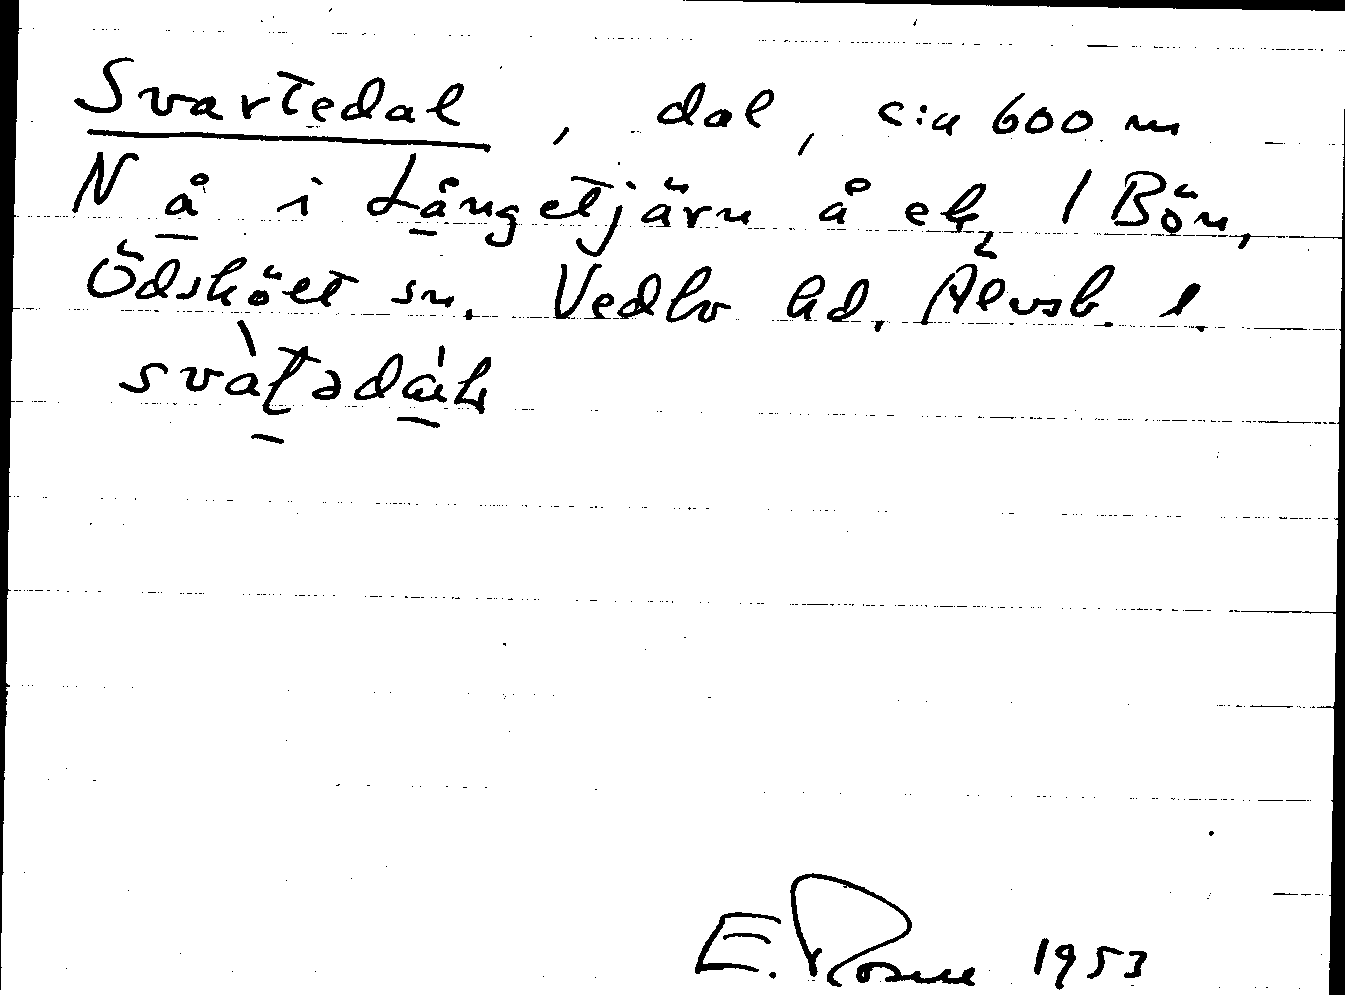 Svartedal, dal, c:a 600 m
N å i Långetjärn å ek. 1 Bön,
Ödskölt sn. Vedbo hd. Älvsb. l.
E. Rosell 1953